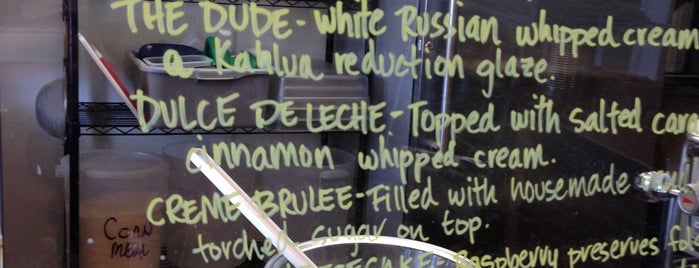 THE DUDE - White Russian whipped cream
a Kahlua reduction glaze.
DULCE DE LECHE - Topped with salted cara
cinnamon whipped cream.
CREME BRULEE - Filled with housemade
torched sugar on top.
Raspberry preserves
CORN
MEAL